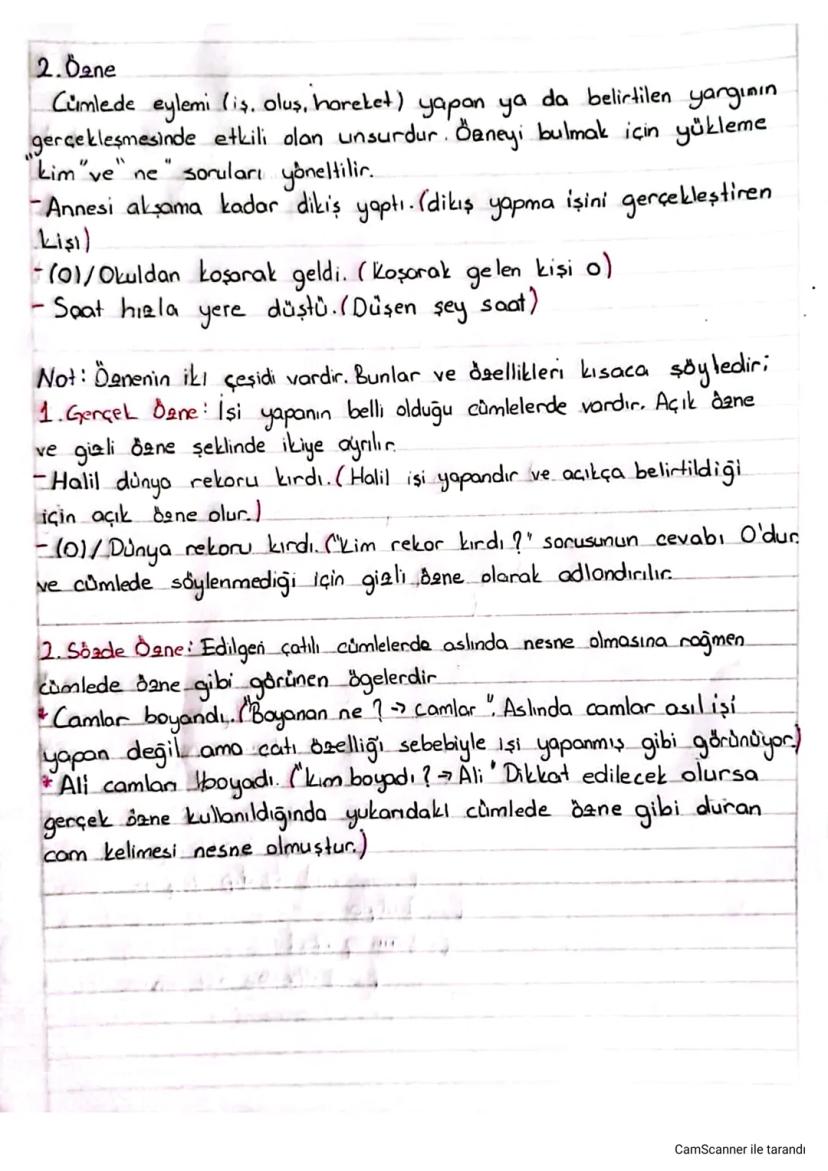 2. Özne
Cümlede eylemi (iş, oluş, hareket) yapan ya da belirtilen yargının
gerçekleşmesinde etkili olan unsurdur. Özneyi bulmak için yükleme
"kim" ve "ne" soruları yöneltilir.
- Annesi akşama kadar dikiş yaptı. (dikiş yapma işini gerçekleştiren
kişi)
- (O)/Okuldan koşarak geldi. (Koşarak gelen kişi o)
- Saat hızla yere düştü. (Düşen şey saat)
Not: Öznenin iki çeşidi vardir. Bunlar ve özellikleri kısaca şöyledir;
1. Gerçek Özne: İşi yapanın belli olduğu cümlelerde vardır. Açık özne
ve gizli özne şeklinde ikiye ayrılır.
- Halil dünya rekoru kırdı. (Halil işi yapandır ve açıkça belirtildiği
için açık özne olur.)
- (O)/Dünya rekoru kırdı. ("Kim rekor kırdı?" sorusunun cevabı O'dur
ve cümlede söylenmediği için gizli özne olarak adlandırılır.
2. Sözde Özne: Edilgen çatılı cümlelerde aslında nesne olmasına rağmen
cümlede özne gibi görünen ögelerdir
* Camlar boyandı. ("Boyanan ne? → camlar". Aslında camlar asıl işi
yapan değil ama çatı özelliği sebebiyle işi yapanmış gibi görünüyor.)
* Ali camları boyadı. ("kim boyadı? → Ali" Dikkat edilecek olursa
gerçek özne kullanıldığında yukarıdaki cümlede özne gibi duran
cam kelimesi nesne olmuştur.)
CamScanner ile tarandı